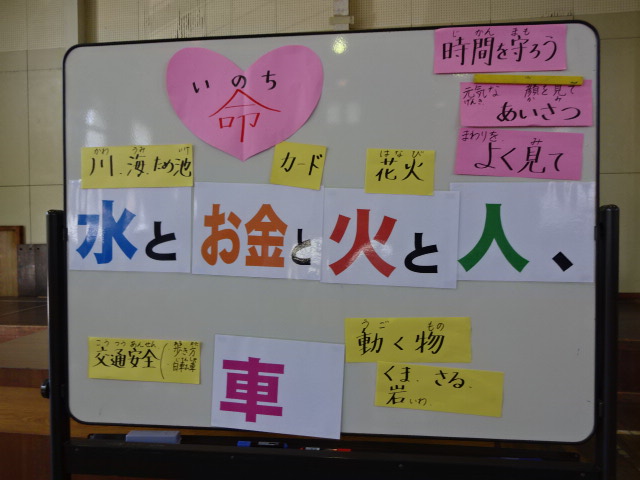 いのち
命
じかんまも
時間を守ろう
元気な 顔を見て
げんき かお み
あいさつ
まわりを み
よく見て
かわ うみ いけ
川、海、ため池
カード
はなび
花火
水とお金と火と人、
こうつうあんぜん
交通安全(歩き方
自転車
車
うご もの
動く物
くま、さる、
岩いわ